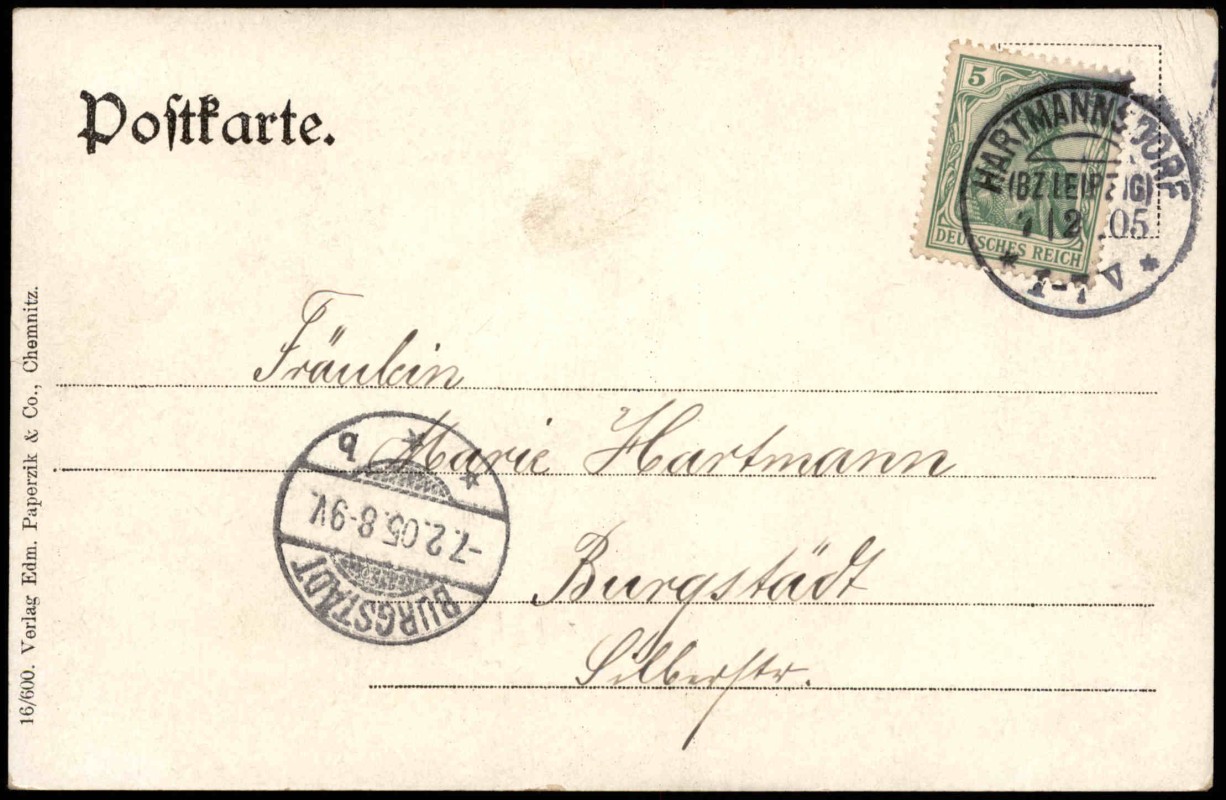 Postkarte.
5
DEUTSCHES REICH
HARTMANNSDORF
(BZ.LEIPZIG)
2 .05
Fräulein
Marie Hartmann
Burgstädt
Silberstr.
BURGSTÄDT
-7.2.05.8-9V.
b
16/600. Verlag Edm. Paperzik & Co., Chemnitz.